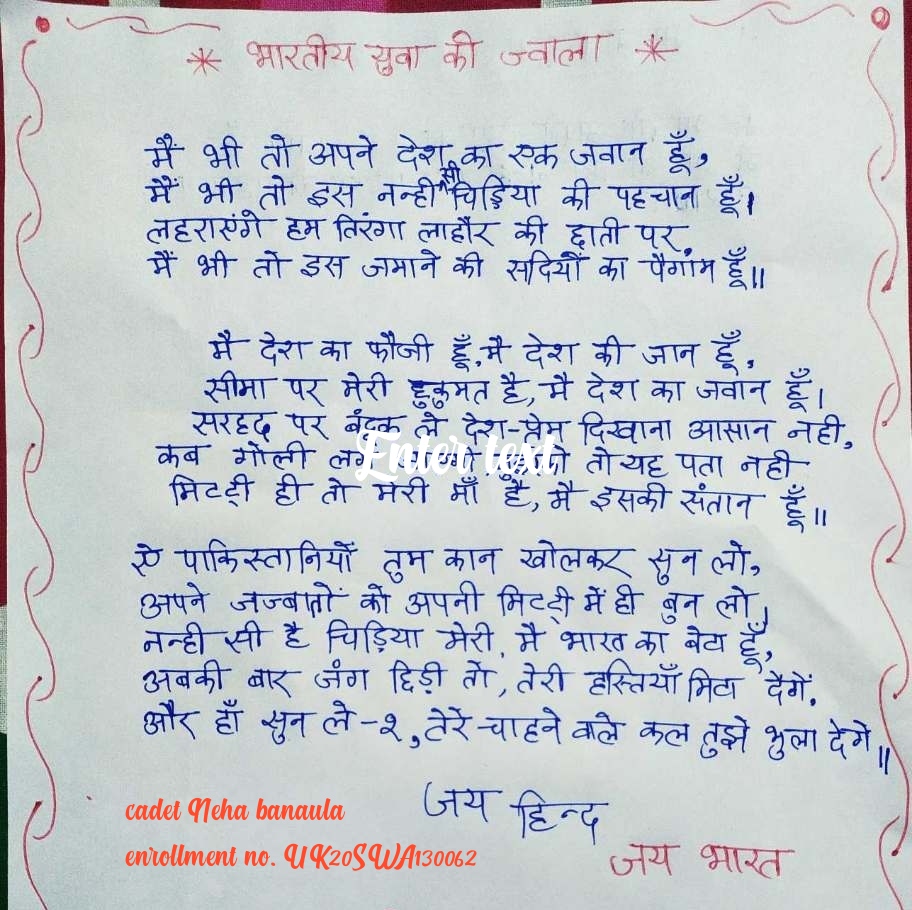 * भारतीय युवा की ज्वाला *
मैं भी तो अपने देश का एक जवान हूँ,
मैं भी तो इस नन्ही सी चिड़िया की पहचान हूँ।
लहराएंगे हम तिरंगा लाहौर की छाती पर,
मैं भी तो इस जमाने की सदियों का पैगाम हूँ॥
मै देश का फौजी हूँ, मै देश की जान हूँ,
सीमा पर मेरी हुकुमत है, मै देश का जवान हूँ।
सरहद पर बंदूक ले देश-प्रेम दिखाना आसान नही,
कब गोली लगे तो यह पता नही
Enter text
मिटटी ही तो मेरी माँ है, मै इसकी संतान हूँ॥
ऐ पाकिस्तानियों तुम कान खोलकर सुन लो,
अपने जज्बातों को अपनी मिटटी में ही बुन लो,
नन्ही सी है चिड़िया मेरी, मै भारत का बेटा हूँ,
अबकी बार जंग छिड़ी तो, तेरी हस्तियाँ मिटा देगें,
और हाँ सुन ले-२, तेरे चाहने वाले कल तुझे भुला देगे॥
जय हिन्द
जय भारत
cadet Neha banaula
enrollment no. UK20SWA130062